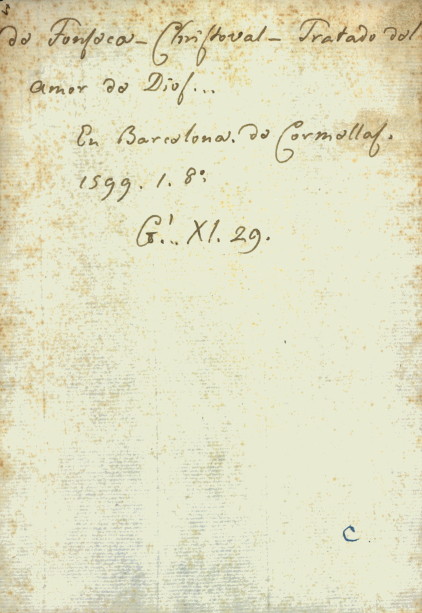 de Fonseca - Christoval - Tratado del
Amor de Dios...
En Barcelona. de Cormellas.
1599. 1. 8º:
G!.. XI. 29.
C